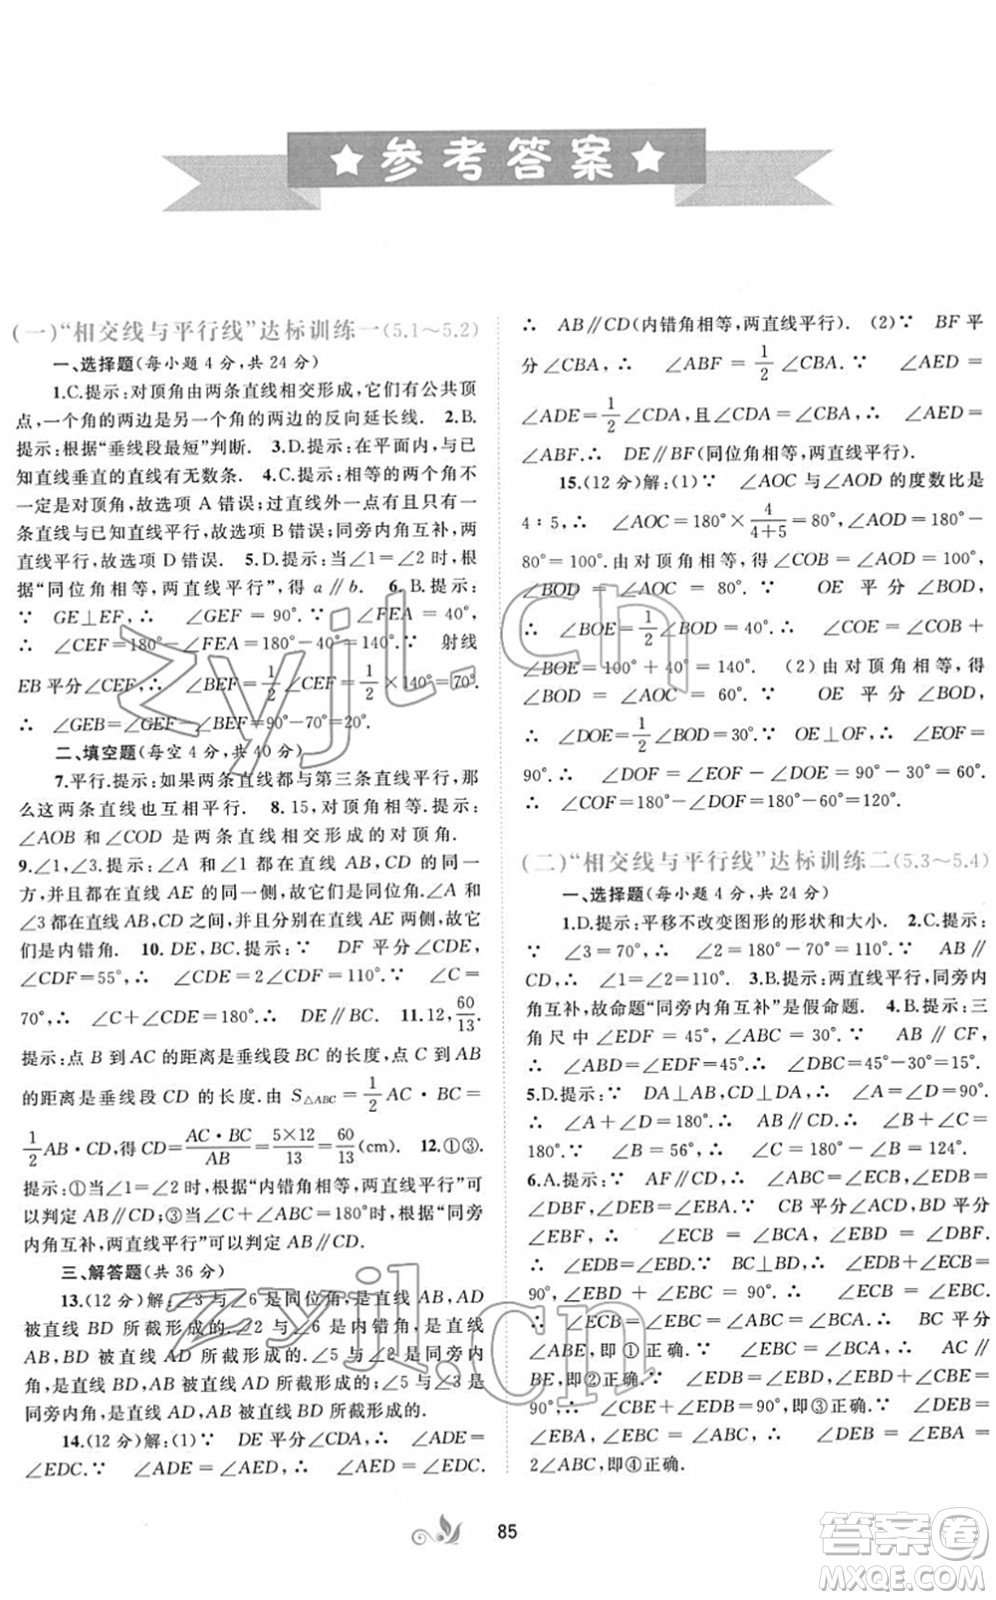 参考答案
(一)“相交线与平行线”达标训练一(5.1～5.2)
一、选择题(每小题 4 分,共 24 分)
1.C.提示:对顶角由两条直线相交形成,它们有公共顶
点,一个角的两边是另一个角的两边的反向延长线. 2.B.
提示:根据“垂线段最短”判断. 3.D.提示:在平面内,与已
知直线垂直的直线有无数条. 4.C.提示:相等的两个角不
一定是对顶角,故选项 A 错误;过直线外一点有且只有一
条直线与已知直线平行,故选项 B 错误;同旁内角互补,两
直线平行,故选项 D 错误. 5.D.提示:当∠1=∠2 时,根
据“同位角相等,两直线平行”,得 a∥b. 6.B.提示:
∵ GE⊥EF,∴ ∠GEF = 90°.∵ ∠FEA = 40°,
∴ ∠CEF=180°-∠FEA=180°-40°=140°.∵ 射线
EB 平分∠CEF,∴ ∠BEF=1/2∠CEF=1/2×140°=70°.
∴ ∠GEB=∠GEF-∠BEF=90°-70°=20°.
二、填空题(每空 4 分,共 40 分)
7.平行.提示:如果两条直线都与第三条直线平行,那
么这两条直线也互相平行. 8.15,对顶角相等.提示:
∠AOB 和∠COD 是两条直线相交形成的对顶角.
9.∠1,∠3.提示:∠A 和∠1 都在直线 AB,CD 的上方,且
在直线 AE 的同一侧,故它们是同位角;∠A 和
∠3 都在直线 AB,CD 之间,并且分别在直线 AE 两侧,故它
们是内错角. 10. DE,BC.提示:∵ DF 平分∠CDE,
∠CDF=55°,∴ ∠CDE=2∠CDF=110°.∵ ∠C=
70°,∴ ∠C+∠CDE=180°.∴ DE∥BC. 11.12,60/13.
提示:点 B 到 AC 的距离是垂线段 BC 的长度,点 C 到 AB
的距离是垂线段 CD 的长度.由 S△ABC=1/2AC·BC=
1/2AB·CD,得 CD=AC·BC/AB=5×12/13=60/13(cm). 12.①③.
提示:①当∠1=∠2 时,根据“内错角相等,两直线平行”可
以判定 AB∥CD;③当∠C+∠ABC=180°时,根据“同旁
内角互补,两直线平行”可以判定 AB∥CD.
三、解答题(共 36 分)
13.(12 分)解:∠3 与∠6 是同位角,是直线 AB,AD
被直线 BD 所截形成的.∠2 与∠6 是内错角,是直线
AB,BD 被直线 AD 所截形成的.∠5 与∠2 是同旁内
角,是直线 BD,AB 被直线 AD 所截形成的.∠5 与∠6 是
同旁内角,是直线 AD,AB 被直线 BD 所截形成的.
14.(12 分)解:(1)∵ DE 平分∠CDA,∴ ∠ADE=
∠EDC.∵ ∠ADE =∠AED,∴ ∠AED =∠EDC.
∴ AB∥CD(内错角相等,两直线平行). (2)∵ BF 平
分∠CBA,∴ ∠ABF = 1/2∠CBA.∵ ∠AED =
∠ADE=1/2∠CDA,且∠CDA=∠CBA,∴ ∠AED=
∠ABF.∴ DE∥BF(同位角相等,两直线平行).
15.(12 分)解:(1)∵ ∠AOC 与∠AOD 的度数比是
4∶5,∴ ∠AOC=180°×4/(4+5)=80°,∠AOD=180°-
80°=100°.由对顶角相等,得∠COB=∠AOD=100°,
∠BOD = ∠AOC = 80°.∵ OE 平分∠BOD,
∴ ∠BOE=1/2∠BOD=40°.∴ ∠COE=∠COB+
∠BOE=100° + 40° = 140°. (2)由对顶角相等,得
∠BOD = ∠AOC = 60°.∵ OE 平分∠BOD,
∴ ∠DOE=1/2∠BOD=30°.∵ OE⊥OF,∴ ∠EOF=
90°.∴ ∠DOF = ∠EOF - ∠DOE = 90° - 30° = 60°.
∴ ∠COF=180°-∠DOF=180°-60°=120°.
(二)“相交线与平行线”达标训练二(5.3～5.4)
一、选择题(每小题 4 分,共 24 分)
1.D.提示:平移不改变图形的形状和大小. 2.C.提示:
∵ ∠3=70°,∴ ∠2=180°-70°=110°.∵ AB∥
CD,∴ ∠1=∠2=110°. 3.B.提示:两直线平行,同旁
内角互补,故命题“同旁内角互补”是假命题. 4.B.提示:三
角尺中∠EDF = 45°,∠ABC = 30°.∵ AB∥CF,
∴ ∠ABD=∠EDF=45°.∴ ∠DBC=45°-30°=15°.
5.D.提示:∵ DA⊥AB,CD⊥DA,∴ ∠A=∠D=90°.
∴ ∠A + ∠D = 180°.∴ AB∥CD.∴ ∠B + ∠C =
180°.∵ ∠B = 56°,∴ ∠C = 180° - ∠B = 124°.
6.A.提示:∵ AF∥CD,∴ ∠ABC=∠ECB,∠EDB=
∠DBF,∠DEB=∠EBA.∵ CB 平分∠ACD,BD 平分
∠EBF,∴ ∠ECB = ∠BCA,∠EBD = ∠DBF.
∴ ∠EDB=∠EBD.∵ BC⊥BD,∴ ∠EDB+∠ECB=
90°,∠EBD + ∠EBC = 90°.∴ ∠ECB = ∠EBC.
∴ ∠ECB=∠EBC=∠ABC=∠BCA.∴ BC 平分
∠ABE,即①正确.∵ ∠EBC=∠BCA,∴ AC∥
BE,即②正确.∵ BC⊥BD,∴ ∠EDB+∠ECB=
90°.∴ ∠BCD+∠EDB=90°,即③正确.∵ ∠DEB=
∠EBA,∠EBC = ∠ABC,∴ ∠DEB = ∠EBA =
2∠ABC,即④正确.
85
zyjl.cn
zyjl.cn
答案卷
MXQE.COM